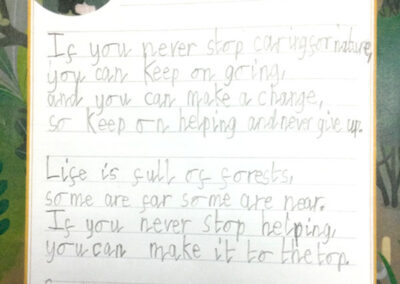 If you never stop caring for nature,
you can keep on going,
and you can make a change,
so keep on helping and never give up.
Life is full of forests,
some are far some are near.
If you never stop helping,
you can make it to the top.